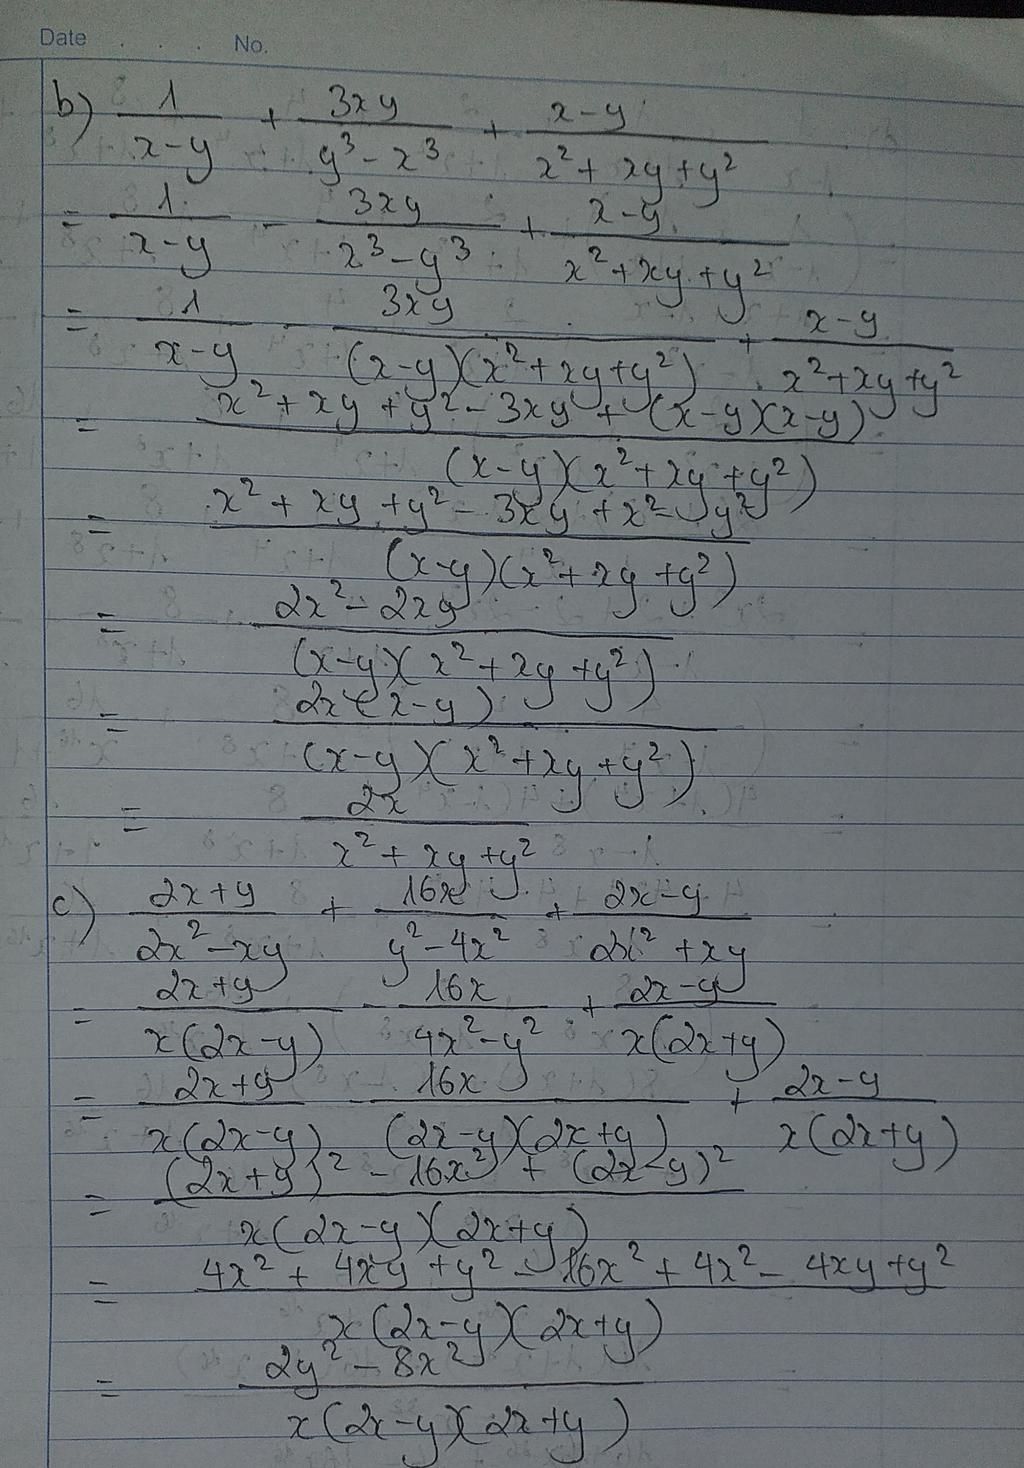 Date . . . No.
b) \frac{1}{x-y} + \frac{3xy}{y^3-x^3} + \frac{x-y}{x^2+xy+y^2}
= \frac{1}{x-y} - \frac{3xy}{x^3-y^3} + \frac{x-y}{x^2+xy+y^2}
= \frac{1}{x-y} - \frac{3xy}{(x-y)(x^2+xy+y^2)} + \frac{x-y}{x^2+xy+y^2}
= \frac{x^2+xy+y^2-3xy+(x-y)(x-y)}{(x-y)(x^2+xy+y^2)}
= \frac{x^2+xy+y^2-3xy+x^2-y^2}{(x-y)(x^2+xy+y^2)}
= \frac{2x^2-2xy}{(x-y)(x^2+xy+y^2)}
= \frac{2x(x-y)}{(x-y)(x^2+xy+y^2)}
= \frac{2x}{x^2+xy+y^2}
c) \frac{2x+y}{2x^2-xy} + \frac{16x}{y^2-4x^2} + \frac{2x-y}{2x^2+xy}
= \frac{2x+y}{x(2x-y)} - \frac{16x}{4x^2-y^2} + \frac{2x-y}{x(2x+y)}
= \frac{2x+y}{x(2x-y)} - \frac{16x}{(2x-y)(2x+y)} + \frac{2x-y}{x(2x+y)}
= \frac{(2x+y)^2-16x^2+(2x-y)^2}{x(2x-y)(2x+y)}
= \frac{4x^2+4xy+y^2-16x^2+4x^2-4xy+y^2}{x(2x-y)(2x+y)}
= \frac{2y^2-8x^2}{x(2x-y)(2x+y)}